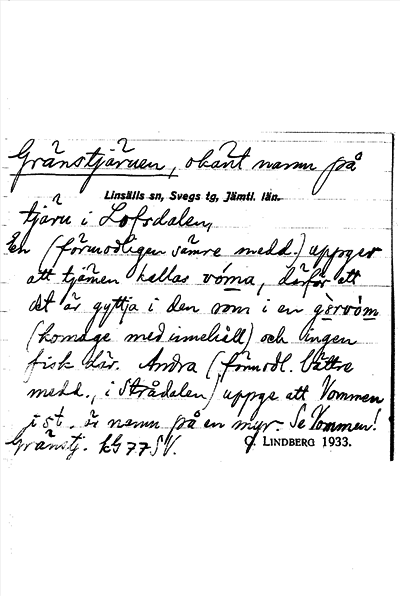 Gränstjärnen, okänt namn på
Linsälls sn, Svegs tg, Jämtl. län.
tjärn i Lofsdalen,
En (förmodligen sämre medd.) uppger
att tjärnen kallas våma, därför att
det är gyttja i den som i en görvåm
(komage med innehåll) och ingen
fisk där. Andra (förmodl. bättre
medd., i Strådalen) uppge att Vommen
i st. är namn på en myr. Se Vommen!
Gränstj. kG 77 SV.
C. LINDBERG 1933.